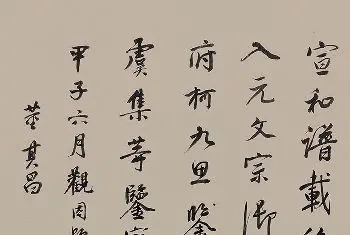 宣和譜載
入元文宗御
府柯九思鑒
虞集等鑒賞
甲子六月觀因題
董其昌